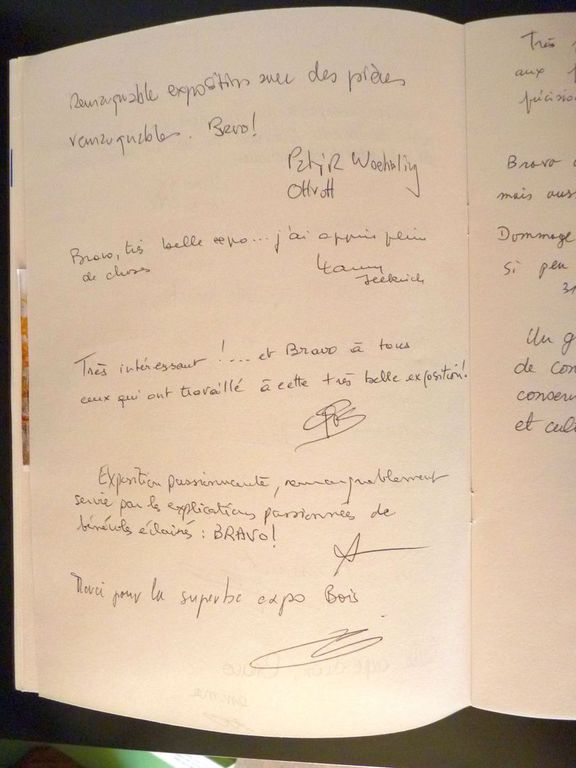 Remarquable exposition avec des pièces
remarquables. Bravo!
Ottrott
Bravo, très belle expo... j'ai appris plein
de choses
Très intéressant !... et Bravo à tous
ceux qui ont travaillé à cette très belle exposition!
Exposition passionnante, remarquablement
servie par les explications passionnées de
bénévoles éclairés : BRAVO!
Merci pour la superbe expo Bois
Très
aux
précision
Bravo
mais aussi
Dommage
si peu
31
Un
de
et